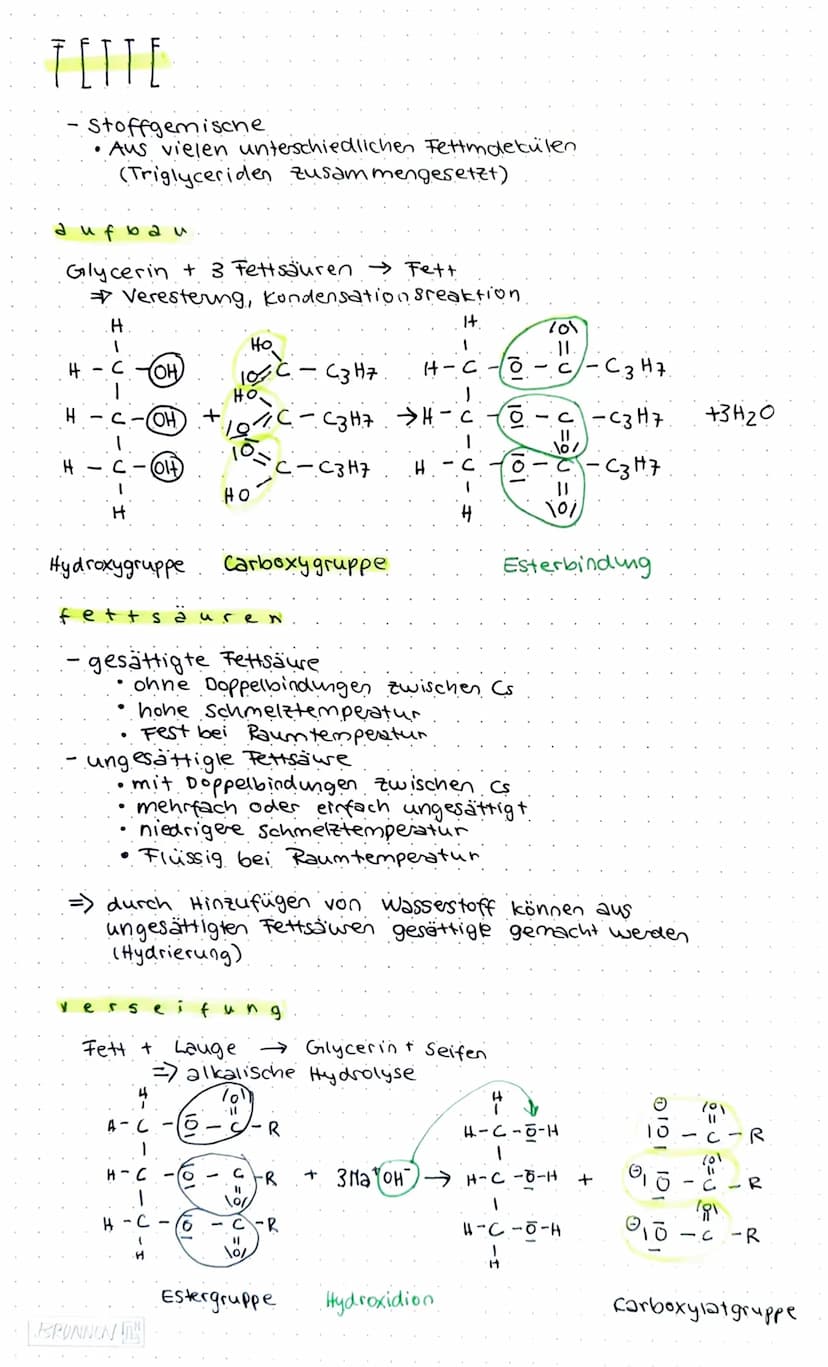 FETTE
- Stoffgemische
• Aus vielen unterschiedlichen Fettmolekülen
(Triglyceriden zusammengesetzt)
aufbau
Glycerin + 3 Fettsäuren → Fett
⇒ Veresterung, Kondensationsreaktion
H H
H - C - OH HO |O= C - C3H7 H - C - O̲̅ - C - C3H7 |O|
H - C - OH + HO |O= C - C3H7 → H - C - O̲̅ - C - C3H7 + 3H2O |O|
H - C - OH |O= HO C - C3H7 H - C - O̲̅ - C - C3H7 |O|
H H
Hydroxygruppe Carboxygruppe Esterbindung
fettsäuren
- gesättigte Fettsäure
• ohne Doppelbindungen zwischen Cs
• hohe Schmelztemperatur
• Fest bei Raumtemperatur
- ungesättigte Fettsäure
• mit Doppelbindungen zwischen Cs
• mehrfach oder einfach ungesättigt
• niedrigere Schmelztemperatur
• Flüssig bei Raumtemperatur
⇒ durch Hinzufügen von Wasserstoff können aus
ungesättigten Fettsäuren gesättige gemacht werden
(Hydrierung)
verseifung
Fett + Lauge → Glycerin + Seifen
⇒ alkalische Hydrolyse
H |O| H ⊖ |O|
H - C - O̲̅ - C - R H - C - O̲̅ - H |O̲̅ - C - R
H - C - O̲̅ - C - R |O| + 3Na⁺ OH⁻ → H - C - O̲̅ - H + ⊖ |O̲̅ - C - R |O|
H - C - O̲̅ - C - R |O| H - C - O̲̅ - H ⊖ |O̲̅ - C - R |O|
H H
Estergruppe Hydroxidion Carboxylatgruppe
BRUNNEN